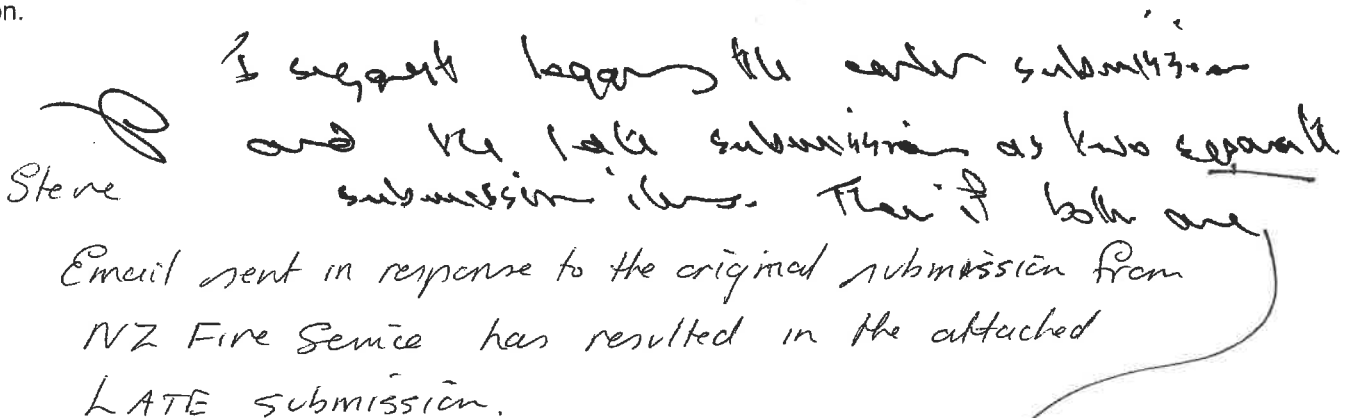 on.
I suggest logging the earlier submission
and the late submission as two separate
Steve
submission items. Then if both are
Email sent in response to the original submission from
NZ Fire Service has resulted in the attached
LATE submission.